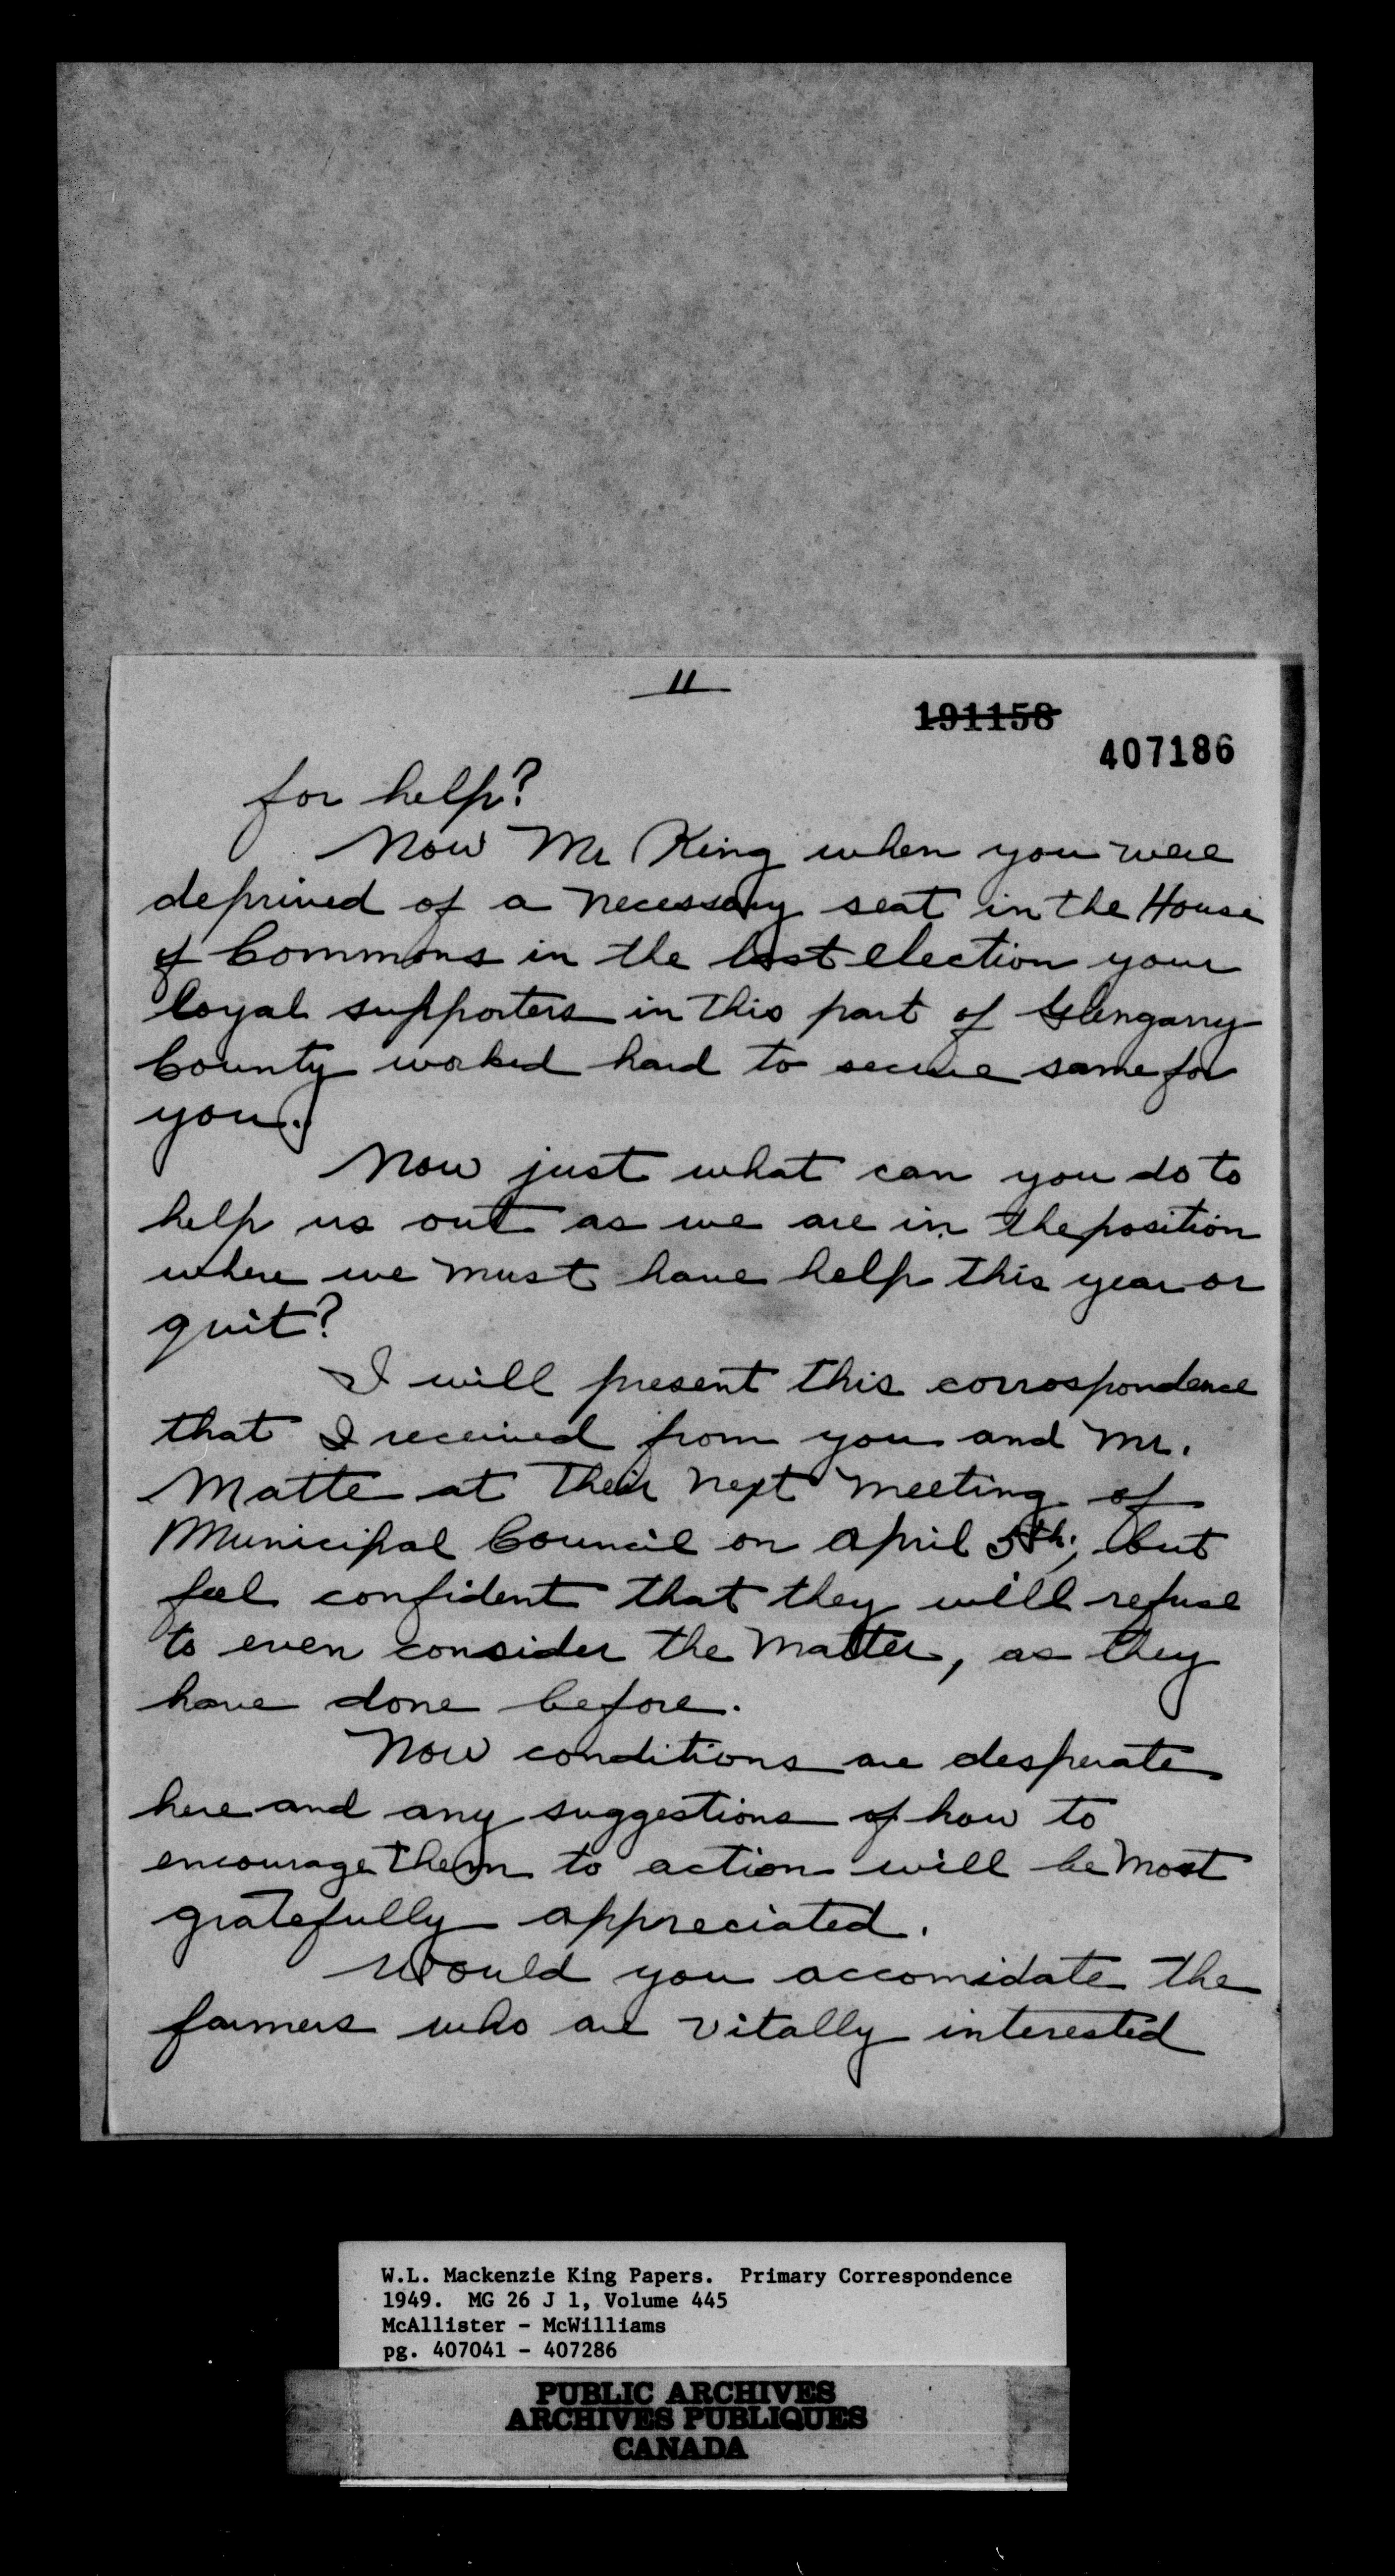 11
191158
407186
for help?
Now Mr King when you were
deprived of a necessary seat in the House
of Commons in the last election your
loyal supporters in this part of Glengarry
County worked hard to secure same for
you.
Now just what can you do to
help us out as we are in the position
where we must have help this year or
quit?
I will present this corrospondence
that I received from you and Mr.
Matte at their next meeting of
Municipal Council on April 5th; but
feel confident that they will refuse
to even consider the matter, as they
have done before.
Now conditions are desperate
here and any suggestions of how to
encourage them to action will be most
gratefully appreciated.
Would you accomidate the
farmers who are vitally interested
W.L. Mackenzie King Papers. Primary Correspondence
1949. MG 26 J 1, Volume 445
McAllister - McWilliams
pg. 407041 - 407286
PUBLIC ARCHIVES
ARCHIVES PUBLIQUES
CANADA